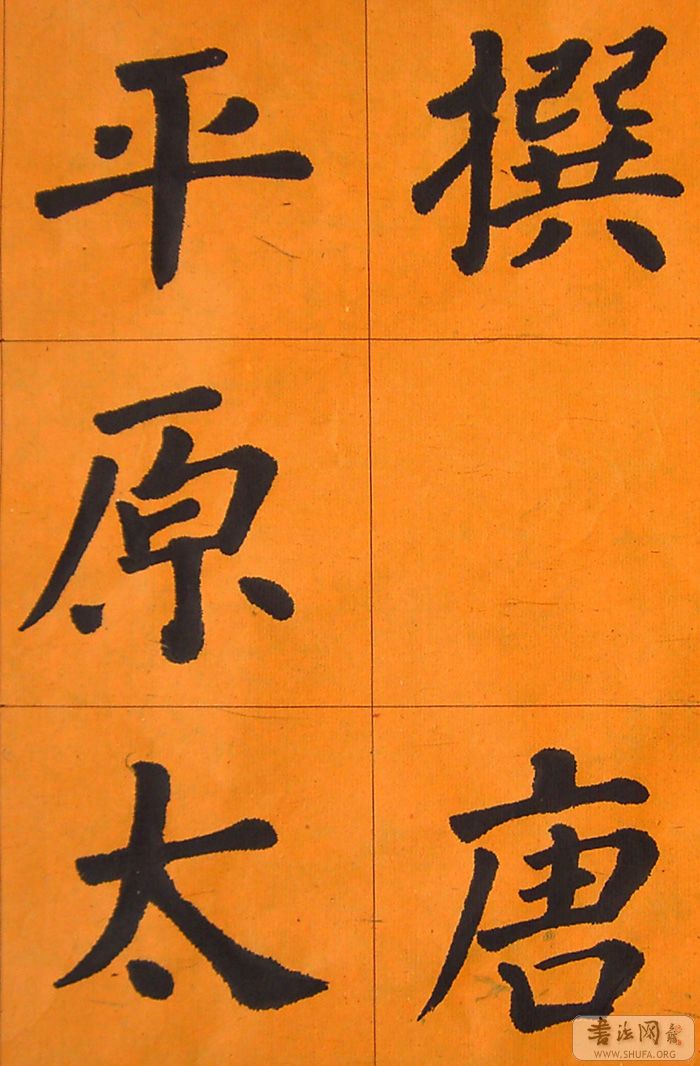 撰 唐
平原太
书法网
WWW.SHUFA.ORG